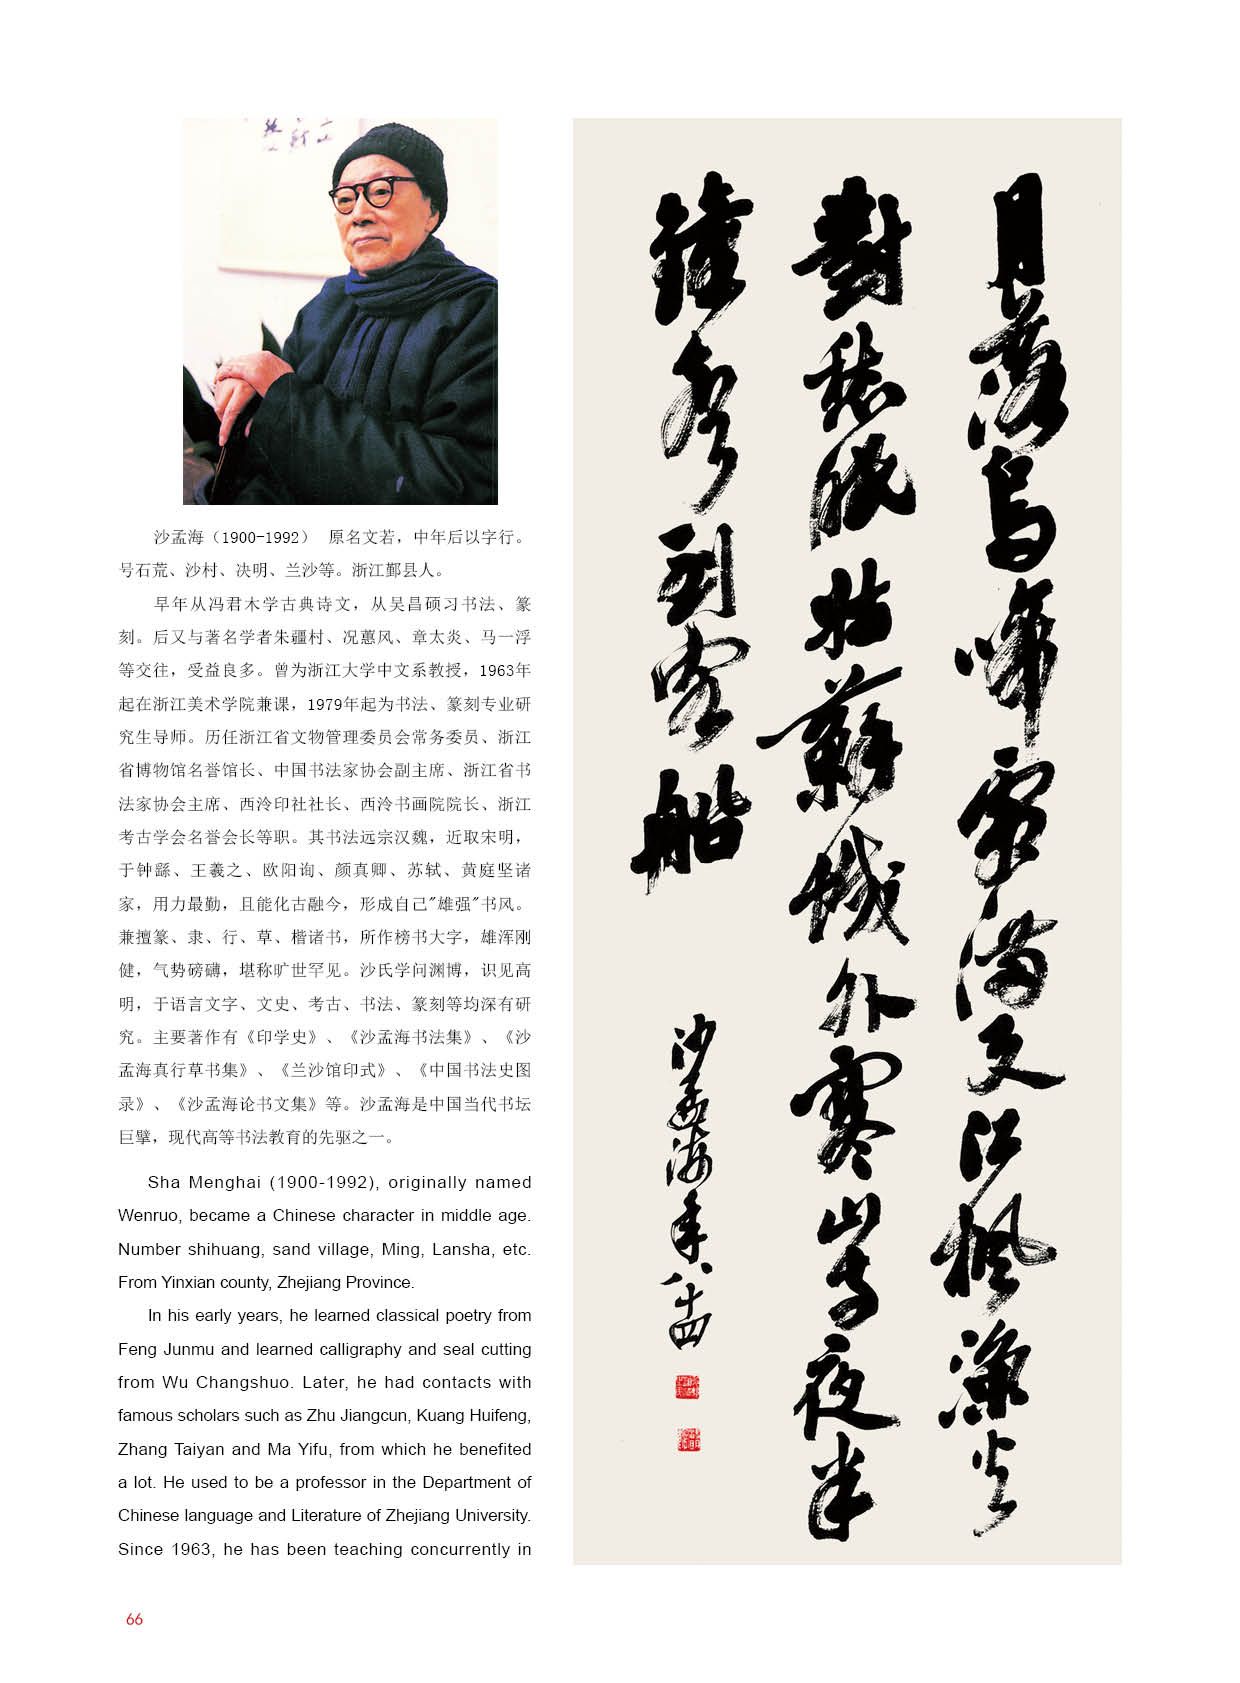 沙孟海（1900-1992） 原名文若，中年后以字行。
号石荒、沙村、决明、兰沙等。浙江鄞县人。
早年从冯君木学古典诗文，从吴昌硕习书法、篆
刻。后又与著名学者朱疆村、况蕙风、章太炎、马一浮
等交往，受益良多。曾为浙江大学中文系教授，1963年
起在浙江美术学院兼课，1979年起为书法、篆刻专业研
究生导师。历任浙江省文物管理委员会常务委员、浙江
省博物馆名誉馆长、中国书法家协会副主席、浙江省书
法家协会主席、西泠印社社长、西泠书画院院长、浙江
考古学会名誉会长等职。其书法远宗汉魏，近取宋明，
于钟繇、王羲之、欧阳询、颜真卿、苏轼、黄庭坚诸
家，用力最勤，且能化古融今，形成自己"雄强"书风。
兼擅篆、隶、行、草、楷诸书，所作榜书大字，雄浑刚
健，气势磅礴，堪称旷世罕见。沙氏学问渊博，识见高
明，于语言文字、文史、考古、书法、篆刻等均深有研
究。主要著作有《印学史》、《沙孟海书法集》、《沙
孟海真行草书集》、《兰沙馆印式》、《中国书法史图
录》、《沙孟海论书文集》等。沙孟海是中国当代书坛
巨擘，现代高等书法教育的先驱之一。
Sha Menghai (1900-1992), originally named
Wenruo, became a Chinese character in middle age.
Number shihuang, sand village, Ming, Lansha, etc.
From Yinxian county, Zhejiang Province.
In his early years, he learned classical poetry from
Feng Junmu and learned calligraphy and seal cutting
from Wu Changshuo. Later, he had contacts with
famous scholars such as Zhu Jiangcun, Kuang Huifeng,
Zhang Taiyan and Ma Yifu, from which he benefited
a lot. He used to be a professor in the Department of
Chinese language and Literature of Zhejiang University.
Since 1963, he has been teaching concurrently in
月落烏啼霜滿天江楓漁火
對愁眠姑蘇城外寒山寺夜半
鐘聲到客船
沙孟海年八十四
66